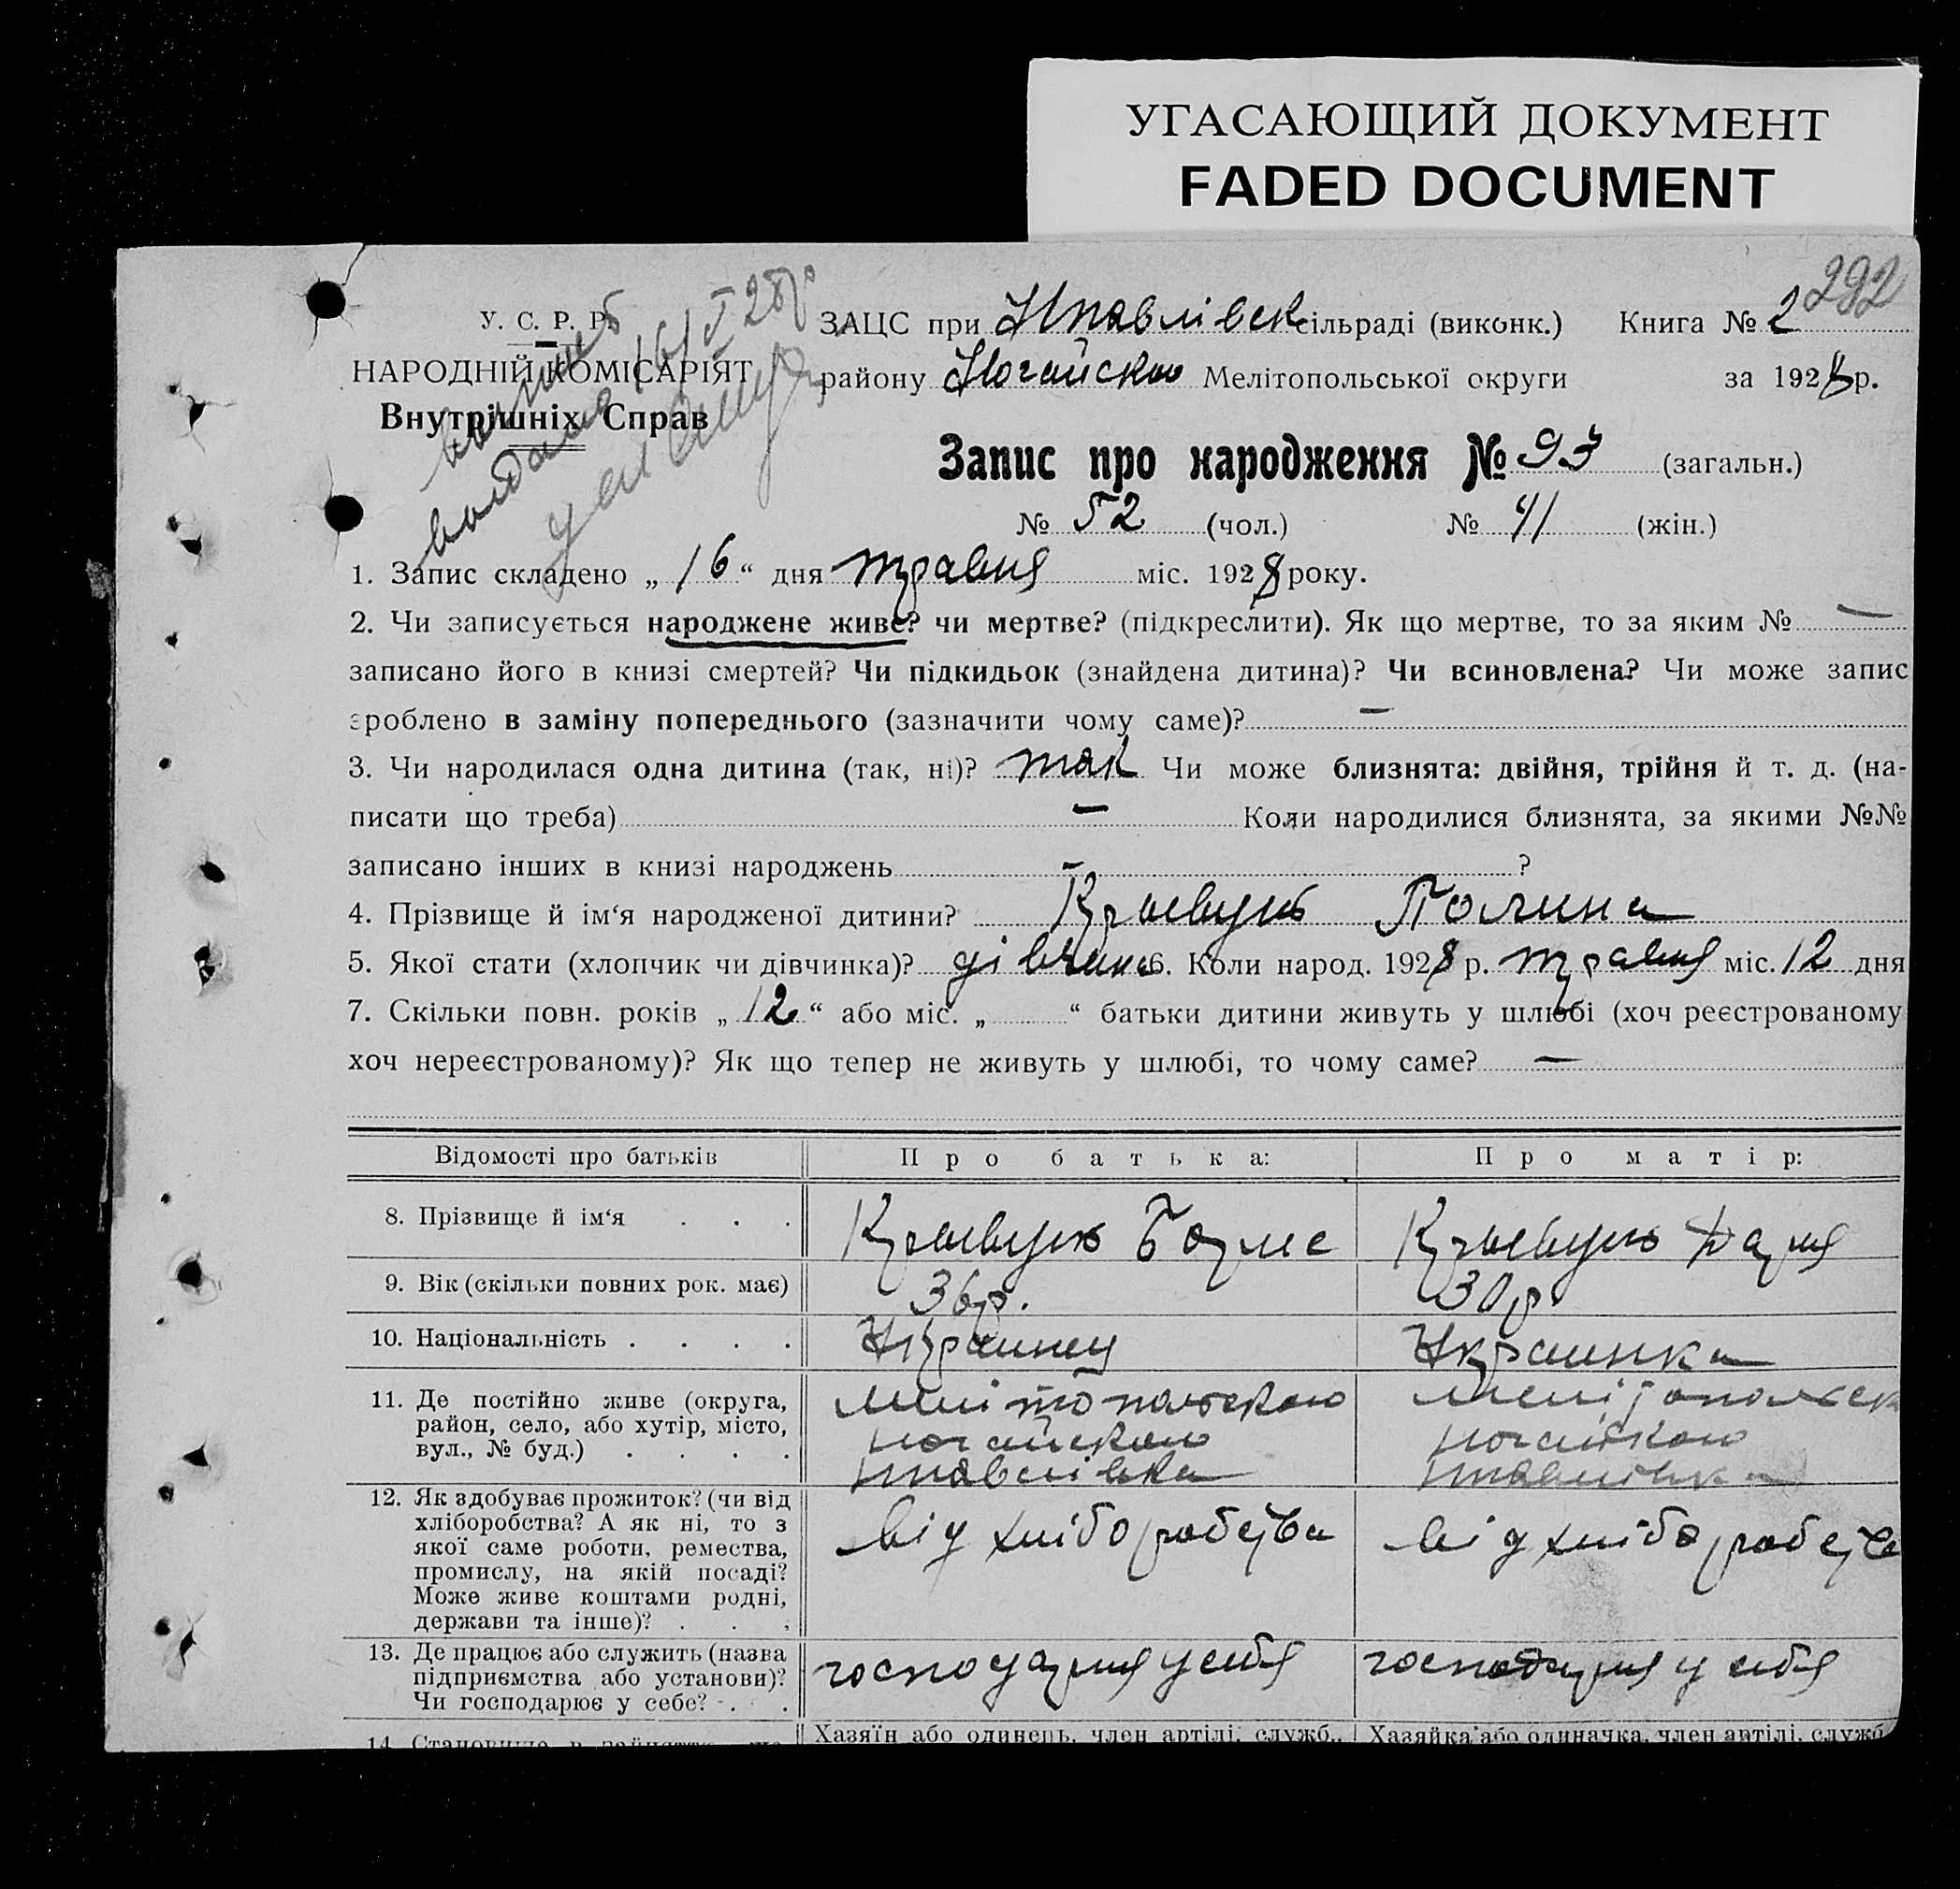 УГАСАЮЩИЙ ДОКУМЕНТ
FADED DOCUMENT
292
У. С. Р. Р.
НАРОДНІЙ КОМІСАРІЯТ
Внутрішніх Справ
ЗАЦС при сільраді (виконк.) Книга № 2
району Ногайского Мелітопольської округи за 1928 р.
Запис про народження № 93 (загальн.)
№ 52 (чол.) № 41 (жін.)
1. Запис складено „ 16 “ дня травня міс. 1928 року.
2. Чи записується народжене живе? чи мертве? (підкреслити). Як що мертве, то за яким № —
записано його в книзі смертей? Чи підкидьок (знайдена дитина)? Чи всиновлена? Чи може запис
зроблено в заміну попереднього (зазначити чому саме)? —
3. Чи народилася одна дитина (так, ні)? так Чи може близнята: двійня, трійня й т. д. (на-
писати що треба) — Коли народилися близнята, за якими №№
записано інших в книзі народжень — ?
4. Прізвище й ім‘я народженої дитини? Полина
5. Якої стати (хлопчик чи дівчинка)? дівчина 6. Коли народ. 1928 р. травня міс. 12 дня
7. Скільки повн. років „ 12 “ або міс. „ “ батьки дитини живуть у шлюбі (хоч реєстрованому
хоч нереєстрованому)? Як що тепер не живуть у шлюбі, то чому саме? —
Відомості про батьків Про батька: Про матір:
8. Прізвище й ім‘я . . .
9. Вік (скільки повних рок. має) 36 р. 30 р.
10. Національність . . . . Украинец Украинка
11. Де постійно живе (округа,
район, село, або хутір, місто,
вул., № буд.) . . . .
12. Як здобуває прожиток? (чи від
хліборобства? А як ні, то з
якої саме роботи, ремества,
промислу, на якій посаді?
Може живе коштами родні,
держави та інше)? . . .
від хліборобства від хліборобства
13. Де працює або служить (назва
підприємства або установи)?
Чи господарює у себе? . .
господаря у себя господаря у себя
Хазяїн або одинець, член артілі, служб., Хазяйка або одиначка, член артілі, служб